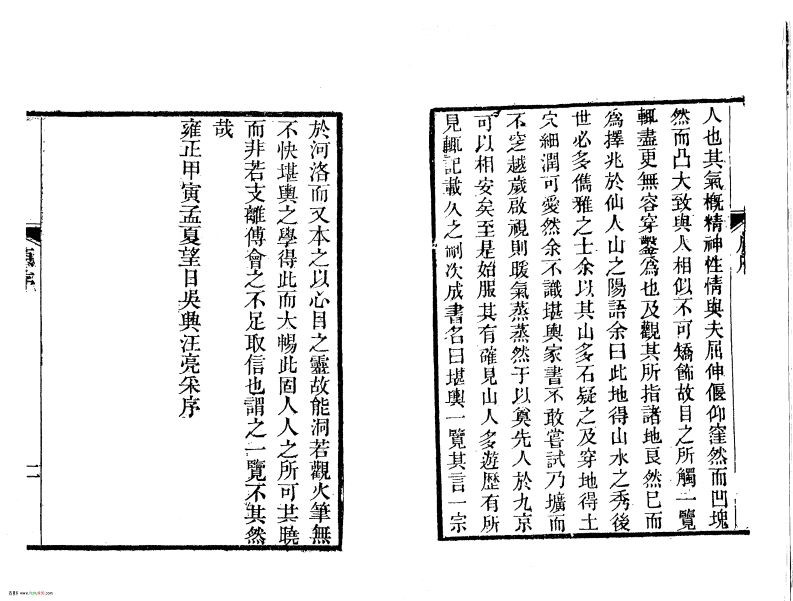 人也其氣概精神性情與夫屈伸偃仰窪然而凹塊
然而凸大致與人相似不可矯飾故目之所觸一覽
輒盡更無容穿鑿為也及觀其所指諸地良然已而
為擇兆於仙人山之陽語余曰此地得山水之秀後
世必多儁雅之士余以其山多石疑之及穿地得土
穴細潤可愛然余不識堪輿家書不敢嘗試乃壙而
不窆越歲啟視則暖氣蒸蒸然于以奠先人於九京
可以相安矣至是始服其有確見山人多遊歷有所
見輒記載久之劂次成書名曰堪輿一覽其言一宗
於河洛而又本之以心目之靈故能洞若觀火筆無
不快堪輿之學得此而大暢此固人人之所可共曉
而非若支離傅會之不足取信也謂之一覽不其然
哉
雍正甲寅孟夏望日吳興汪亮采序
舊序
二